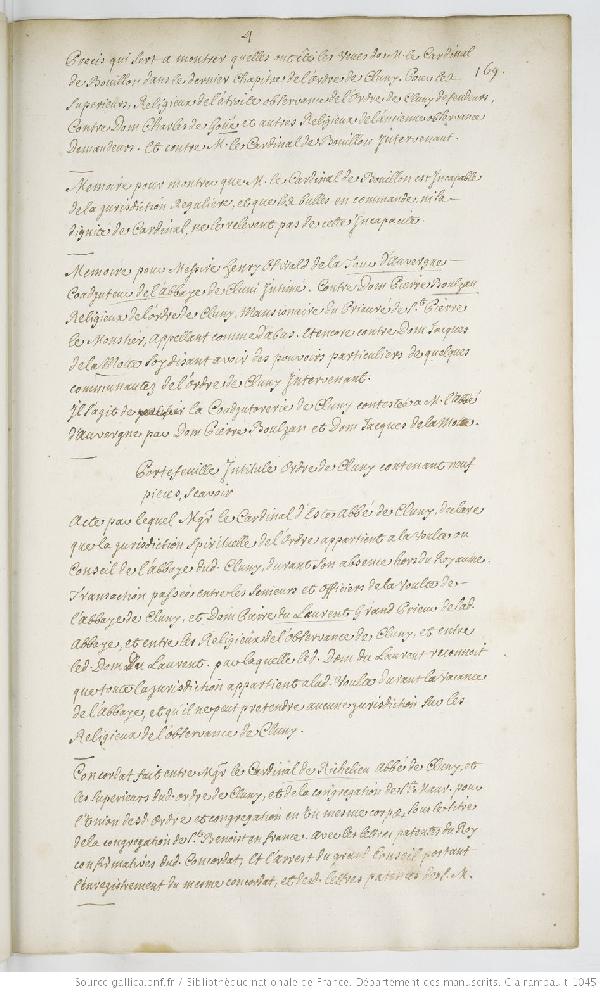 4
169.
Precis qui sert a montrer quelles ont esté les veues de M. le Cardinal
de Bouillon dans le dernier Chapitre de l'ordre de Cluny. Pour les
Superieurs, Religieux de l'étroite observance de l'Ordre de Cluny defendeurs,
Contre Dom Charles de et autres Religieux de l'ancienne observance
demandeurs. Et contre M. le Cardinal de Bouillon Intervenant.
Memoire pour montrer que M. le Cardinal de Bouillon est Incapable
de la jurisdiction Reguliere, et que les bulles en commande, ni la
dignité de Cardinal, ne le relevent pas de cette Incapacité.
Memoire pour Messire Henry Oswald de la Tour d'Auvergne
Coadjuteur de l'abbaye de Cluni Intimé. Contre Dom Pierre Boulzan
Religieux de l'ordre de Cluny, Mansionnaire du Prieuré de St. Pierre
le Monstier, Appellant comme d'abus. Et encore contre Dom Jacques
de la Motte soy disant avoir des pouvoirs particuliers de quelques
communautez de l'Ordre de Cluny Intervenant.
Il s'agit de la Coadjutorerie de Cluny contestée a M. l'abbé
d'Auvergne par Dom Pierre Boulzan et Dom Jacques de la Motte.
Portefeuille Intitulé Ordre de Cluny contenant neuf
pieces, scavoir
Acte par lequel Mgr. le Cardinal d'Este Abbé de Cluny, declare
que la jurisdiction spirituelle de l'Ordre appartient a la Voulte ou
Conseil de l'abbaye dud. Cluny, durant son absence hors du Royaume.
Transaction passée entre les Senieurs et officiers de la Voulte de
l'abbaye de Cluny, et Dom Pierre du Laurent Grand Prieur de lad.
Abbaye, et entre les Religieux de l'observance de Cluny, et entre
led. Dom Du Laurent. par laquelle led. Dom du Laurent reconnoit
que toute la jurisdiction appartient a lad. Voulte durant la vacance
de l'abbaye, et qu'il ne peut pretendre aucune jurisdiction sur les
Religieux de l'observance de Cluny.
Concordat fait entre Mgr. le Cardinal de Richelieu Abbé de Cluny, et
les superieurs dud. ordre de Cluny, et de la congregation de St. Maur, pour
l'Union desd. ordre et congregation en un mesme corps, sous le titre
de la congregation de St. Benoist en france. avec les lettres patentes du Roy
confirmatives dud. Concordat, et l'arrest du grand Conseil portant
l'enregistrement du mesme concordat, et desd. lettres patentes de S. M.
Source gallica.bnf.fr / Bibliothèque nationale de France. Département des manuscrits. Clairambault 1045